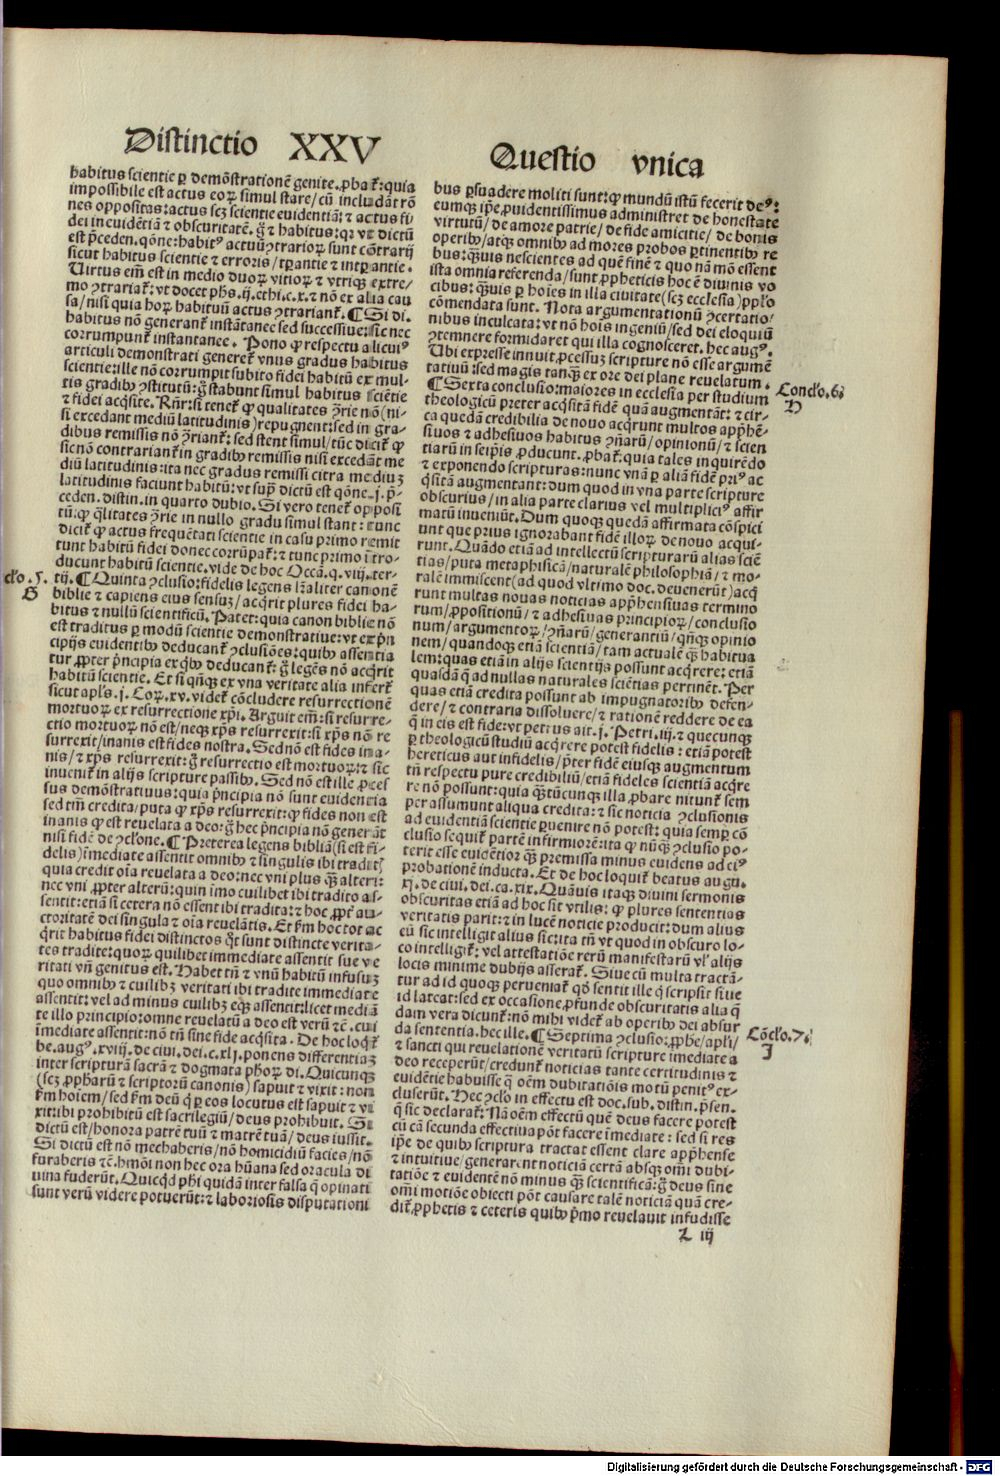 Distinctio XXV
habitus scientie ꝑ demōstrationē genite. ꝓbaẗ: quia
impossibile est actus eoꝝ simul stare/ cū includāt rō
nes oppositas: actus scꝫ scientie euidentiā: ⁊ actus fi
dei incuidētiā ⁊ obscuritatē. g̊ ⁊ habitus: qꝛ vt dictū
est p̄ceden. qōne: habitꝰ actuū ꝯtrarioꝝ sunt cōtrarij
sicut habitus scientie ⁊ erroris/ tꝑantie ⁊ intꝑantie.
Uirtus em̄ est in medio duoꝝ vitioꝝ ⁊ vtriqꝫ extre/
mo ꝯtrariaẗ: vt docet ph̄s. ij. ethi. c. x. ⁊ nō ex alia cau
sa/ nisi quia hoꝝ habituū actus ꝯtrarianẗ. ¶ Si di.
habitus nō generanẗ instātanee sed successiue: sic nec
corrumpunẗ instantanee. Pono ꝙ respectu alicuiꝰ
articuli demonstrati genereẗ vnus gradus habitus
scientie: ille nō corrumpit subito fidei habitū ex mul-
tis gradibꝰ ꝯstitutū: g̊ stabunt simul habitus sciētie
⁊ fidei acq̄site. Rn̄r: si teneẗ ꝙ qualitates ꝯ̄rie nō (ni-
si excedant mediū latitudinis) repugnent: sed in gra-
dibus remissis nō ꝯ̄rianẗ: sed stent simul/ tūc diciẗ ꝙ
sic nō contrarianẗ in gradibꝰ remissis nisi excedāt me
diū latitudinis: ita nec gradus remissi citra mediuꝫ
latitudinis faciunt habitū: vt supͣ dictū est qōne. j. p̄-
ceden. distin. in quarto dubio. Si vero teneẗ opposi
tū: ꝙ q̄litates ꝯ̄rie in nullo gradu simul stant: tunc
diciẗ ꝙ actus frequētati scientie in casu primo remit
tunt habitū fidei donec corrūpaẗ: ⁊ tunc primo ītro-
ducunt habitū scientie. vide de hoc Occā. q. viij. ter-
tij. ¶ Quinta ꝯclusio: fidelis legens l̄raliter canonē
biblie ⁊ capiens eius sensuꝫ/ acq̄rit plures fidei ha-
bitus ⁊ nullū scientificū. Patet: quia canon biblie nō
est traditus ꝑ modū scientie demonstratiue: vt ex p̄n
cipijs euidentibꝰ deducanẗ ꝯclusiōes: quibꝰ assentia
tur ꝓpter p̄ncipia ex q̄bꝰ deducanẗ: g̊ legēs nō acq̄rit
habitū scientie. Et si qn̄qꝫ ex vna veritate alia inferẗ
sicut apl̄s. j. Coꝝ. xv. videẗ cōcludere resurrectionē
mortuoꝝ ex resurrectione xp̄i. Arguit em̄: si resurre-
ctio mortuoꝝ nō est/ neqꝫ xp̄s resurrexit: si xp̄s nō re
surrexit/ inanis est fides nostra. Sed nō est fides ina-
nis/ ⁊ xp̄s resurrexit: g̊ resurrectio est mortuoꝝ: ⁊ sic
inueniẗ in alijs scripture passibꝰ. Sed nō est ille ꝓces
sus demōstratiuus: quia p̄ncipia nō sunt euidentia
sed tm̄ credita/ puta ꝙ xp̄s resurrexit: ꝙ fides non est
inanis ꝙ est reuelata a deo: g̊ hec p̄ncipia nō generāt
nisi fidē de ꝯcl'one. ¶ Preterea legens bibliā (si est fi-
delis) īmediate assentit omnibꝰ ⁊ singulis ibi tradit
quia credit oīa reuelata a deo: nec vni plus qꝫ alteri:
nec vni ꝓpter alterū: quin īmo cuilibet ibi tradito as-
sentit: etiā si cetera nō essent ibi tradita: ⁊ hoc ꝓpẗ au-
ctoritatē dei singula ⁊ oīa reuelātis. Et ẜm hoc tot ac
q̄rit habitus fidei distinctos q̄t sunt distincte verita-
tes tradite: quoꝝ quilibet immediate assentit sue ve
ritati vn̄ genitus est. Habet tn̄ ⁊ vnū habitū infusuꝫ
quo omnibꝰ ⁊ cuilibꝫ veritati ibi tradite immediate
assentit: vel ad minus cuilibꝫ eq̄ assentit: licet mediā
te illo principio: omne reuelatū a deo est verū ⁊c̄. cui
īmediate assentit: nō tn̄ sine fide acq̄sita. De hoc loq̄ẗ
be. augꝰ. xviij. de ciui. dei. c. xlj. ponens differentiaꝫ
inter scripturā sacrā ⁊ dogmata ph̄oꝝ di. Quicunqꝫ
(scꝫ ꝓph̄arū ⁊ scriptorū canonis) sapuit ⁊ vixit: non
ẜm hoīem/ sed ẜm deū q̄ ꝑ eos locutus est sapuit ⁊ vi
xit: ibi prohibitū est sacrilegiū/ deus prohibuit. Si
dictū est/ honora patrē tuū ⁊ matrē tuā/ deus iussit.
Si dictū est nō mechaberis/ nō homicidiū facies/ nō
furaberis ⁊c̄. hm̄oi non hec ora hūana sed oracula di
uina fuderūt. Quicq̄d ph̄i quidā inter falsa q̄ opinati
sunt verū videre potuerūt: ⁊ laboriosis disputationi
clo. 5.
G
Questio vnica
bus ꝑsuadere moliti sunt: ꝙ mundū istū fecerit deꝰ:
eumqꝫ ip̄e ꝓuidentissimus administret de honestate
virtutū/ de amore patrie/ de fide amicitie/ de bonis
operibꝰ/ atqꝫ omnibꝰ ad mores probos ꝑtinentibꝰ re
bus: qꝫuis nescientes ad quē finē ⁊ quo nā mō essent
ista omnia referenda/ sunt ꝓpheticis hoc ē diuinis vo
cibus: qꝫuis ꝑ hoīes in illa ciuitate (scꝫ ecclesia) pp̄l'o
cōmendata sunt. Nota argumentationū ꝯcertatio/
nibus inculcata: vt nō hoīs ingeniū/ sed dei eloquiū
ꝯtemnere formidaret qui illa cognosceret. hec augꝰ.
Ubi expresse innuit ꝓcessuꝫ scripture nō esse argumē
tatiuū: sed magis tanqꝫ ex ore dei plane reuelatum.
¶ Sexta conclusio: maiores in ecclesia per studium
theologicū preter acq̄sitā fidē quā augmentāt: ⁊ cir-
ca quedā credibilia de nouo acq̄runt multos app̄hē-
siuos ⁊ adhesiuos habitus ꝯn̄arū/ opinionū/ ⁊ scien
tiarū in seip̄is ꝓducunt. ꝓbaẗ: quia tales inquirēdo
⁊ exponendo scripturas: nunc vnā ꝑ aliā fidē priꝰ ac
q̄sitā augmentant: dum quod in vna parte scripture
obscurius/ in alia parte clarius vel multipliciꝰ affir
matū inueniūt. Dum quoqꝫ quedā affirmata cōspici
unt que prius ignorabant fidē illoꝝ de nouo acqui-
runt. Quādo etiā ad intellectū scripturarū alias sciē
tias/ puta metaphisicā/ naturalē philosophiā/ ⁊ mo-
ralē immiscent (ad quod vltimo doc. deuenerūt) acq̄
runt multas nouas noticias app̄hensiuas termino
rum/ ꝓpositionū/ ⁊ adhesiuas principioꝝ/ conclusio
num/ argumentoꝝ/ ꝯn̄arū/ generantiū/ qn̄qꝫ opinio
nem/ quandoqꝫ etiā scientiā/ tam actualē qꝫ habitua
lem: quas etiā in alijs scientijs possunt acq̄rere: etiā
quasdā q̄ ad nullas naturales sciētias pertinēt. Per
quas etiā credita possunt ab impugnatoribꝰ defen-
dere/ ⁊ contraria dissoluere/ ⁊ rationē reddere de ea
q̄ in eis est fide: vt petrus ait. j. Petri. iij. ⁊ quecunqꝫ
ꝑ theologicū studiū acq̄rere potest fidelis: etiā potest
hereticus aut infidelis/ p̄ter fidē eiusqꝫ augmentum
tn̄ respectu pure credibiliū/ etiā fideles scientiā acq̄re
re nō possunt: quia qꝫtūcunqꝫ illa ꝓbare nitunẗ sem
per assumunt aliqua credita: ⁊ sic noticia ꝯclusionis
ad euidentiā scientie ꝑuenire nō potest: quia semꝑ cō
clusio sequiẗ partē infirmiorē: ita ꝙ nūqꝫ ꝯclusio po-
terit esse euidētior qꝫ premissa minus euidens ad eiꝰ
probationē inducta. Et de hoc loquiẗ beatus augu.
xj. de ciui. dei. ca. xix. Quāuis itaqꝫ diuini sermonis
obscuritas etiā ad hoc sit vtilis: ꝙ plures sententias
veritatis parit: ⁊ in lucē noticie producit: dum alius
eū sic intelligit alius sic: ita tn̄ vt quod in obscuro lo-
co intelligiẗ: vel attestatiōe rerū manifestarū vl' alijs
locis minime dubijs asseraẗ. Siue cū multa tractā-
tur ad id quoqꝫ perueniaẗ qd̄ sentit ille q̄ scripsit siue
id lateat: sed ex occasione ꝓfunde obscuritatis alia q̄
dam vera dicunẗ: nō mihi videẗ ab operibꝰ dei absur
da sententia. hec ille. ¶ Septima ꝯclusio: ꝓph̄e/ apl̄i/
⁊ sancti qui reuelationē veritatū scripture imediate a
deo receperūt/ credunẗ noticias tante certitudinis ⁊
euidētie habuisse q̄ oēm dubitatiōis motū penitꝰ ex-
cluserūt. Hec ꝯcl'o in effectu est doc. sub. distin. p̄sen.
q̄ sic declaraẗ: Nā oēm effectū quē deus facere potest
cū cā secunda effectiua pōt facere īmediate: sed si res
ip̄e de quibꝰ scriptura tractat essent clare app̄hense
⁊ intuitiue/ generarent noticiā certā absqꝫ om̄i dubi-
tatiōe ⁊ euidentē nō minus qꝫ scientificā: g̊ deus sine
om̄i motiōe obiecti pōt causare talē noticiā quā cre-
diẗ ꝓphetis ⁊ ceteris quibꝰ p̄mo reuelauit infudisse
Conclo. 6.
H
Cōclo. 7.
I
L iij
Digitalisierung gefördert durch die Deutsche Forschungsgemeinschaft - DFG